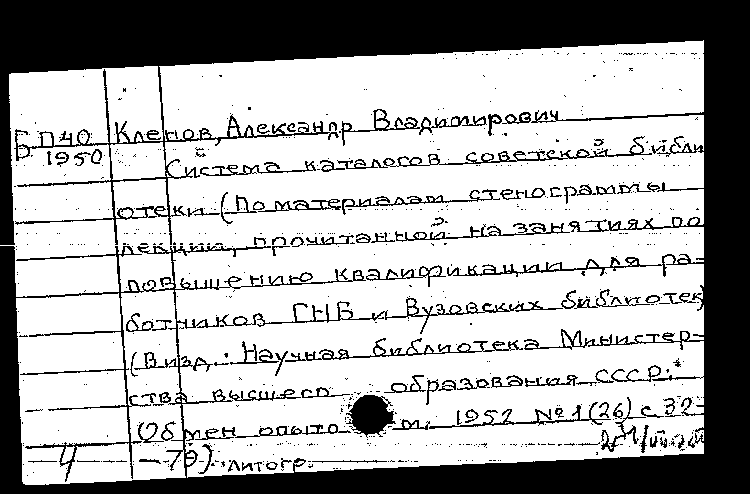 Б П40 Кленов, Александр Владимирович
Б 1950
Система каталогов советской библи
отеки (По материалам стенограммы
лекции, прочитанной на занятиях по
повышению квалификации для ра-
ботников ГНБ и Вузовских библиотек)
(В изд.: Научная библиотека Министер-
ства высшего образования СССР:
Обмен опытом. 1952 № 1(26) с 32-
4 -79). литогр.